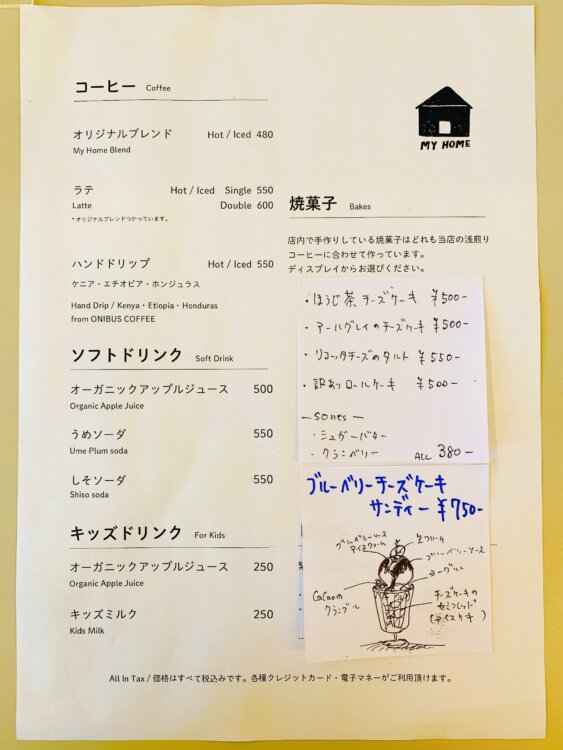 コーヒー Coffee
オリジナルブレンド Hot / Iced 480
My Home Blend
ラテ Hot / Iced Single 550
Latte Double 600
* オリジナルブレンドつかっています。
ハンドドリップ Hot / Iced 550
ケニア・エチオピア・ホンジュラス
Hand Drip / Kenya・Etiopia・Honduras
from ONIBUS COFFEE
ソフトドリンク Soft Drink
オーガニックアップルジュース 500
Organic Apple Juice
うめソーダ 550
Ume Plum soda
しそソーダ 550
Shiso soda
キッズドリンク For Kids
オーガニックアップルジュース 250
Organic Apple Juice
キッズミルク 250
Kids Milk
MY HOME
焼菓子 Bakes
店内で手作りしている焼菓子はどれも当店の浅煎り
コーヒーに合わせて作っています。
ディスプレイからお選びください。
・ほうじ茶チーズケーキ ¥500-
・アールグレイのチーズケーキ ¥500-
・リコッタチーズのタルト ¥550-
・訳ありロールケーキ ¥500-
- Sones -
・シュガーバター
・クランベリー ALL 380-
ブルーベリーチーズケーキ
サンディー ¥750-
ブルーベリーソース
アイスクリーム
生クリーム
ブルーベリーソース
ヨーグルト
Cacaoの
クランブル
チーズケーキの
セミフレッド
(アイスケーキ)
All In Tax / 価格はすべて税込みです。各種クレジットカード・電子マネーがご利用頂けます。